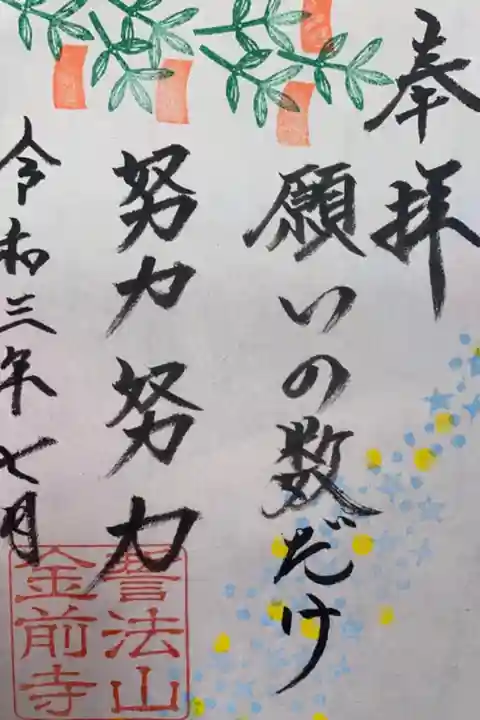 奉拝
願いの数だけ
努力努力
令和三年七月
誓法山
金前寺